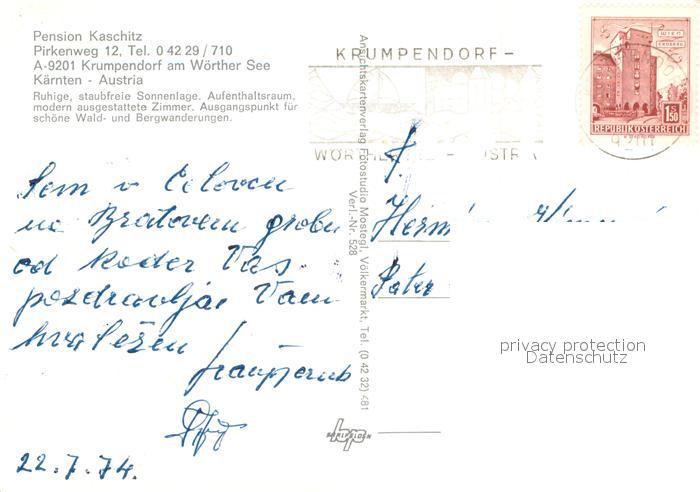 Pension Kaschitz
Pirkenweg 12, Tel. 0 42 29 / 710
A-9201 Krumpendorf am Wörther See
Kärnten - Austria
Ruhige, staubfreie Sonnenlage. Aufenthaltsraum,
modern ausgestattete Zimmer. Ausgangspunkt für
schöne Wald- und Bergwanderungen.
Sem v Celovcu
na Bratovem grobu
od koder Vas
pozdravlja Vam
hvaležen
22.7.74.
Ansichtskartenverlag Fotostudio Mostegl, Völkermarkt, Tel. (0 42 32) 481
Verl.-Nr. 528
KRUMPENDORF-
WIEN
ERDBERG
1.50
REPUBLIK ÖSTERREICH
Herm
Pater
privacy protection
Datenschutz
bp